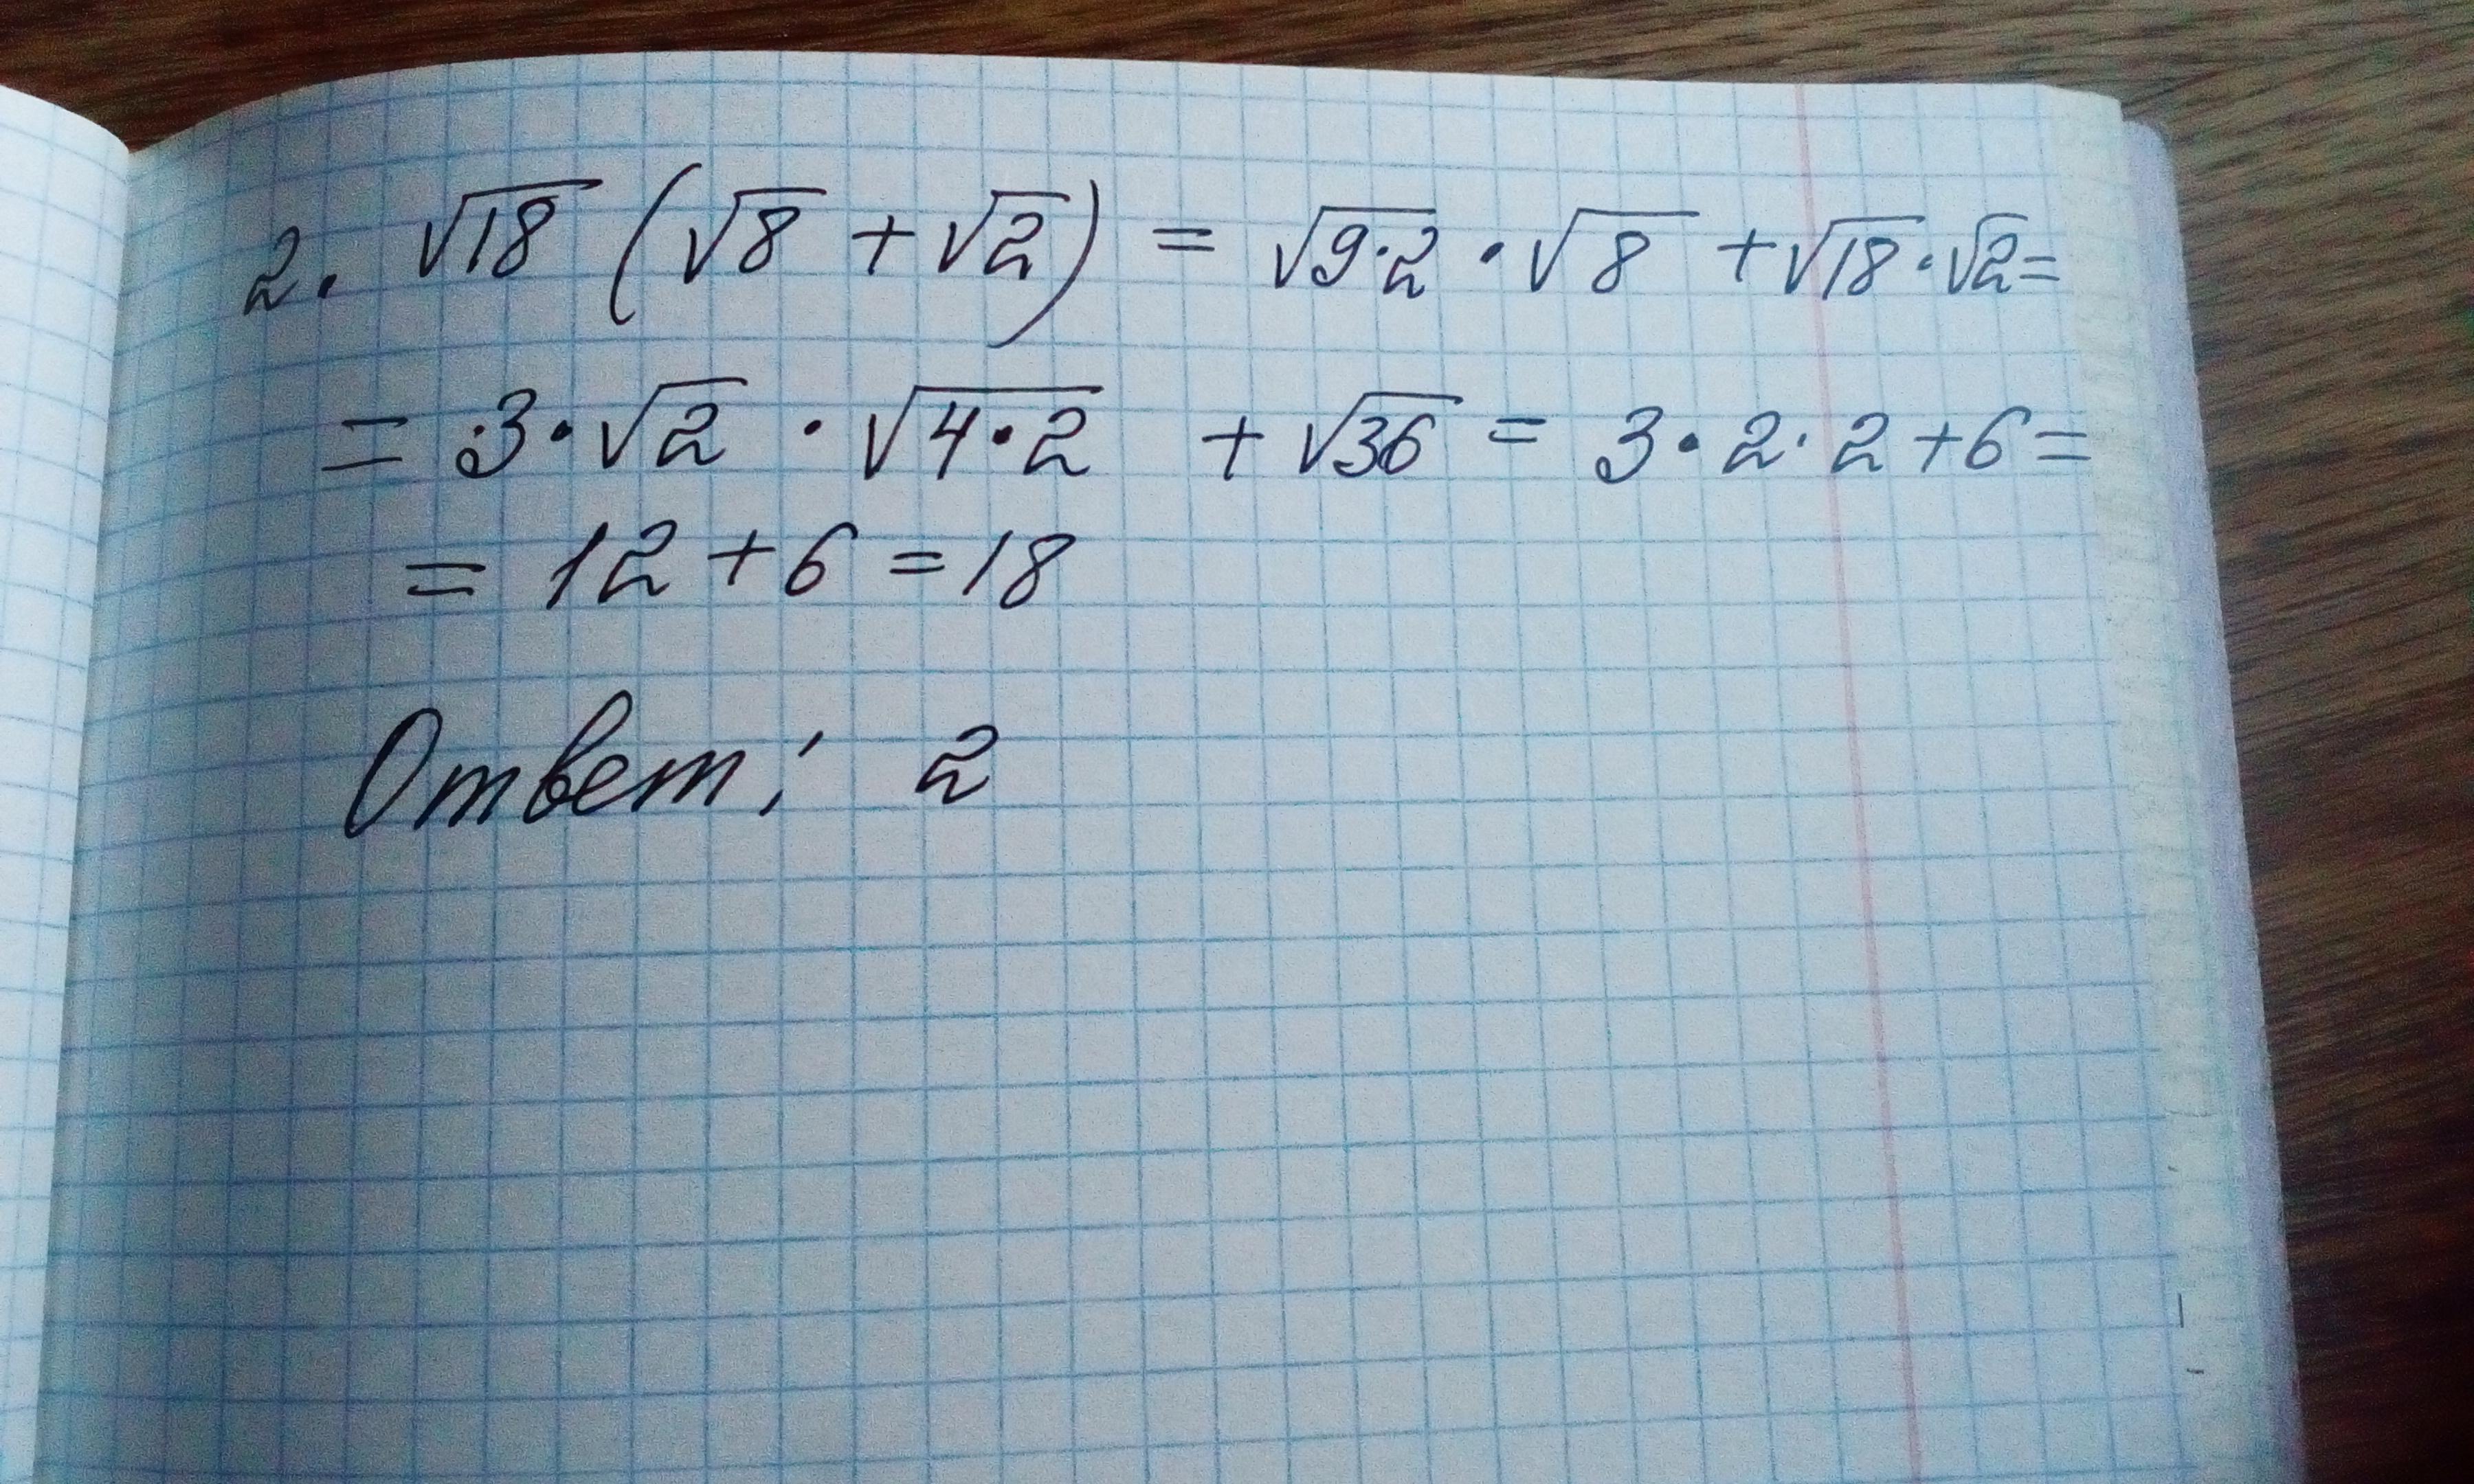 2. √18 (√8 + √2) = √9·2 · √8 + √18 · √2 =
= 3 · √2 · √4·2 + √36 = 3 · 2 · 2 + 6 =
= 12 + 6 = 18
Ответ: 2